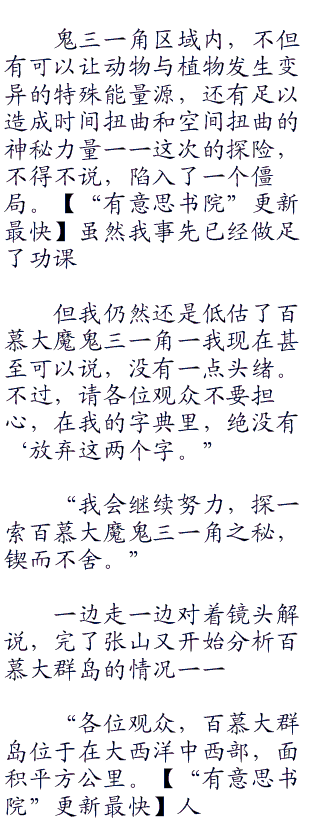 鬼三一角区域内，不但
有可以让动物与植物发生变
异的特殊能量源，还有足以
造成时间扭曲和空间扭曲的
神秘力量一一这次的探险，
不得不说，陷入了一个僵
局。【“有意思书院”更新
最快】虽然我事先已经做足
了功课
但我仍然还是低估了百
慕大魔鬼三一角一我现在甚
至可以说，没有一点头绪。
不过，请各位观众不要担
心，在我的字典里，绝没有
‘放弃这两个字。”
“我会继续努力，探一
索百慕大魔鬼三一角之秘，
锲而不舍。”
一边走一边对着镜头解
说，完了张山又开始分析百
慕大群岛的情况一一
“各位观众，百慕大群
岛位于在大西洋中西部，面
积平方公里。【“有意思书
院”更新最快】人